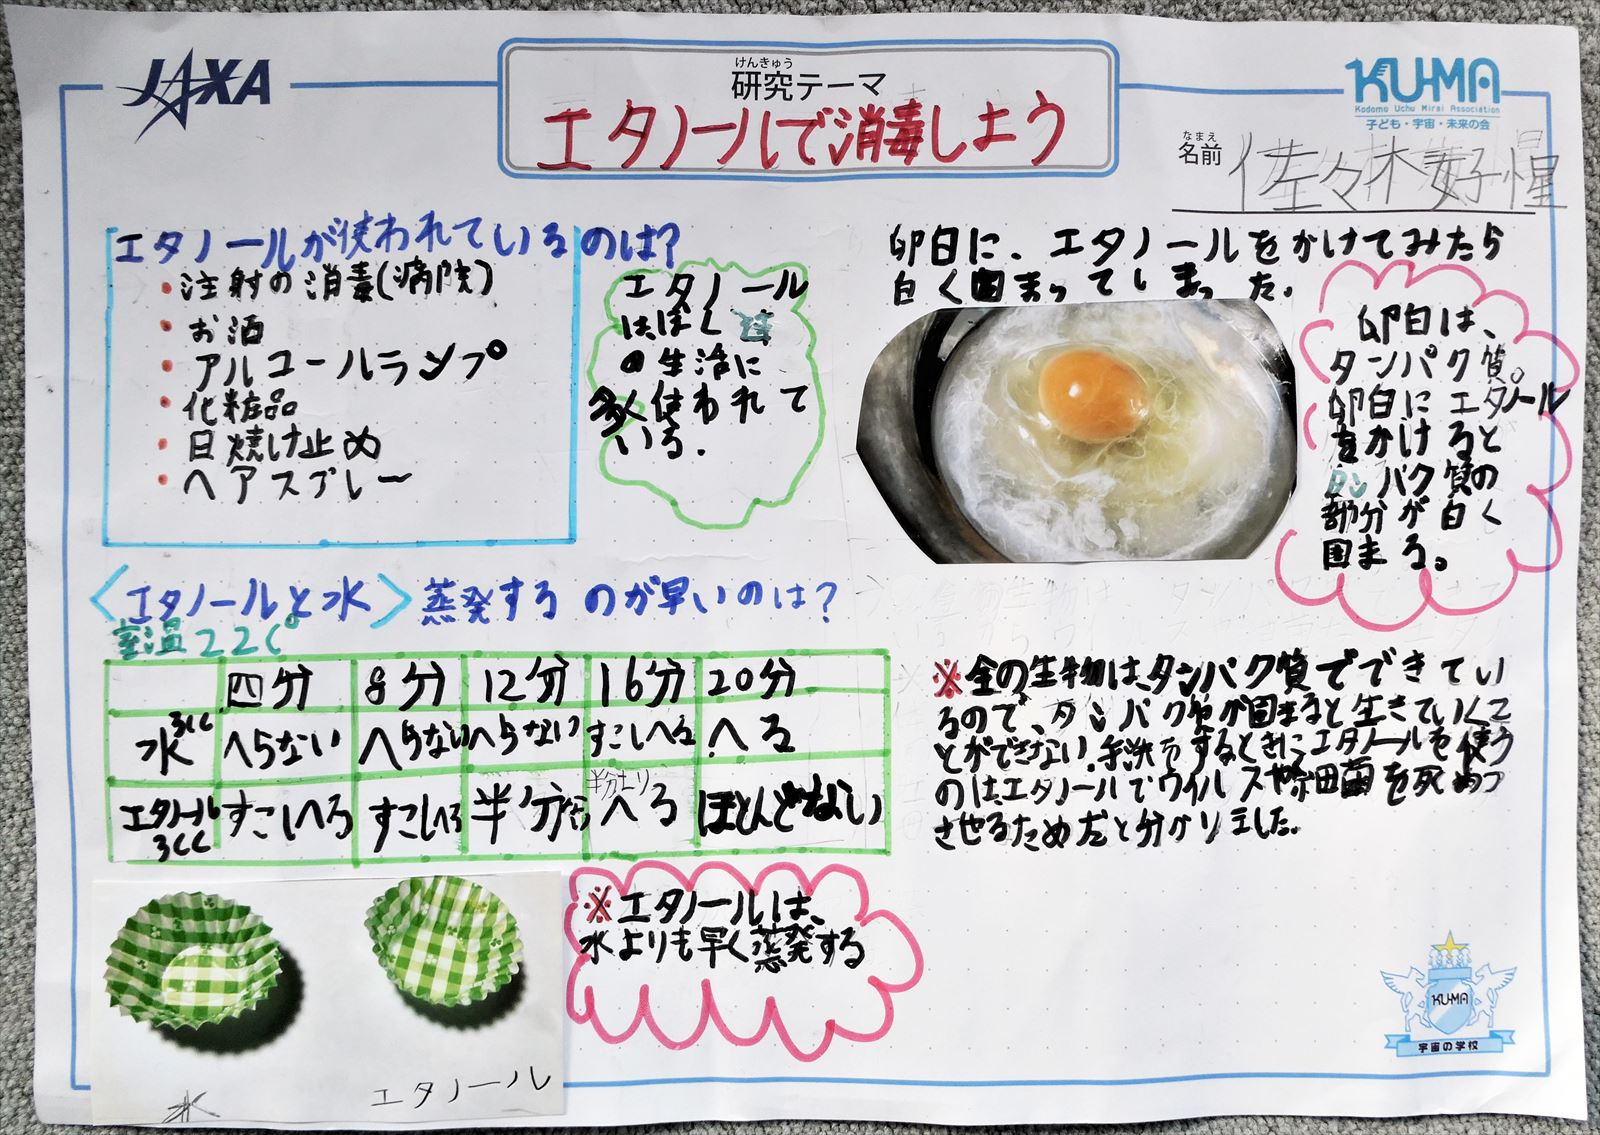 JAXA
けんきゅう
研究テーマ
エタノールで消毒しよう
KU-MA
Kodomo Uchu Mirai Association
子ども・宇宙・未来の会
なまえ
名前
佐々木好惺
エタノールが使われているのは?
・注射の消毒(病院)
・お酒
・アルコールランプ
・化粧品
・日焼け止め
・ヘアスプレー
エタノール
はぼく達
の生活に
多く使われて
いる.
卵白に、エタノールをかけてみたら
白く固まってしまった.
卵白は、
タンパク質。
卵白にエタノール
をかけると
タンパク質の
部分が白く
固まる。
〈エタノールと水〉蒸発するのが早いのは?
室温22C°
四分 8分 12分 16分 20分
水3cc へらない へらない へらない すこしへる へる
エタノール3cc すこしへる すこしへる 半分 半分よりへる ほとんどない
※全の生物は、タンパク質でできてい
るので、タンパク質が固まると生きていくこ
とができない.手洗をするときにエタノールを使う
のは、エタノールでウイルスや細菌を死めつ
させるためだと分かりました.
※エタノールは、
水よりも早く蒸発する
水
エタノール
KU-MA
宇宙の学校